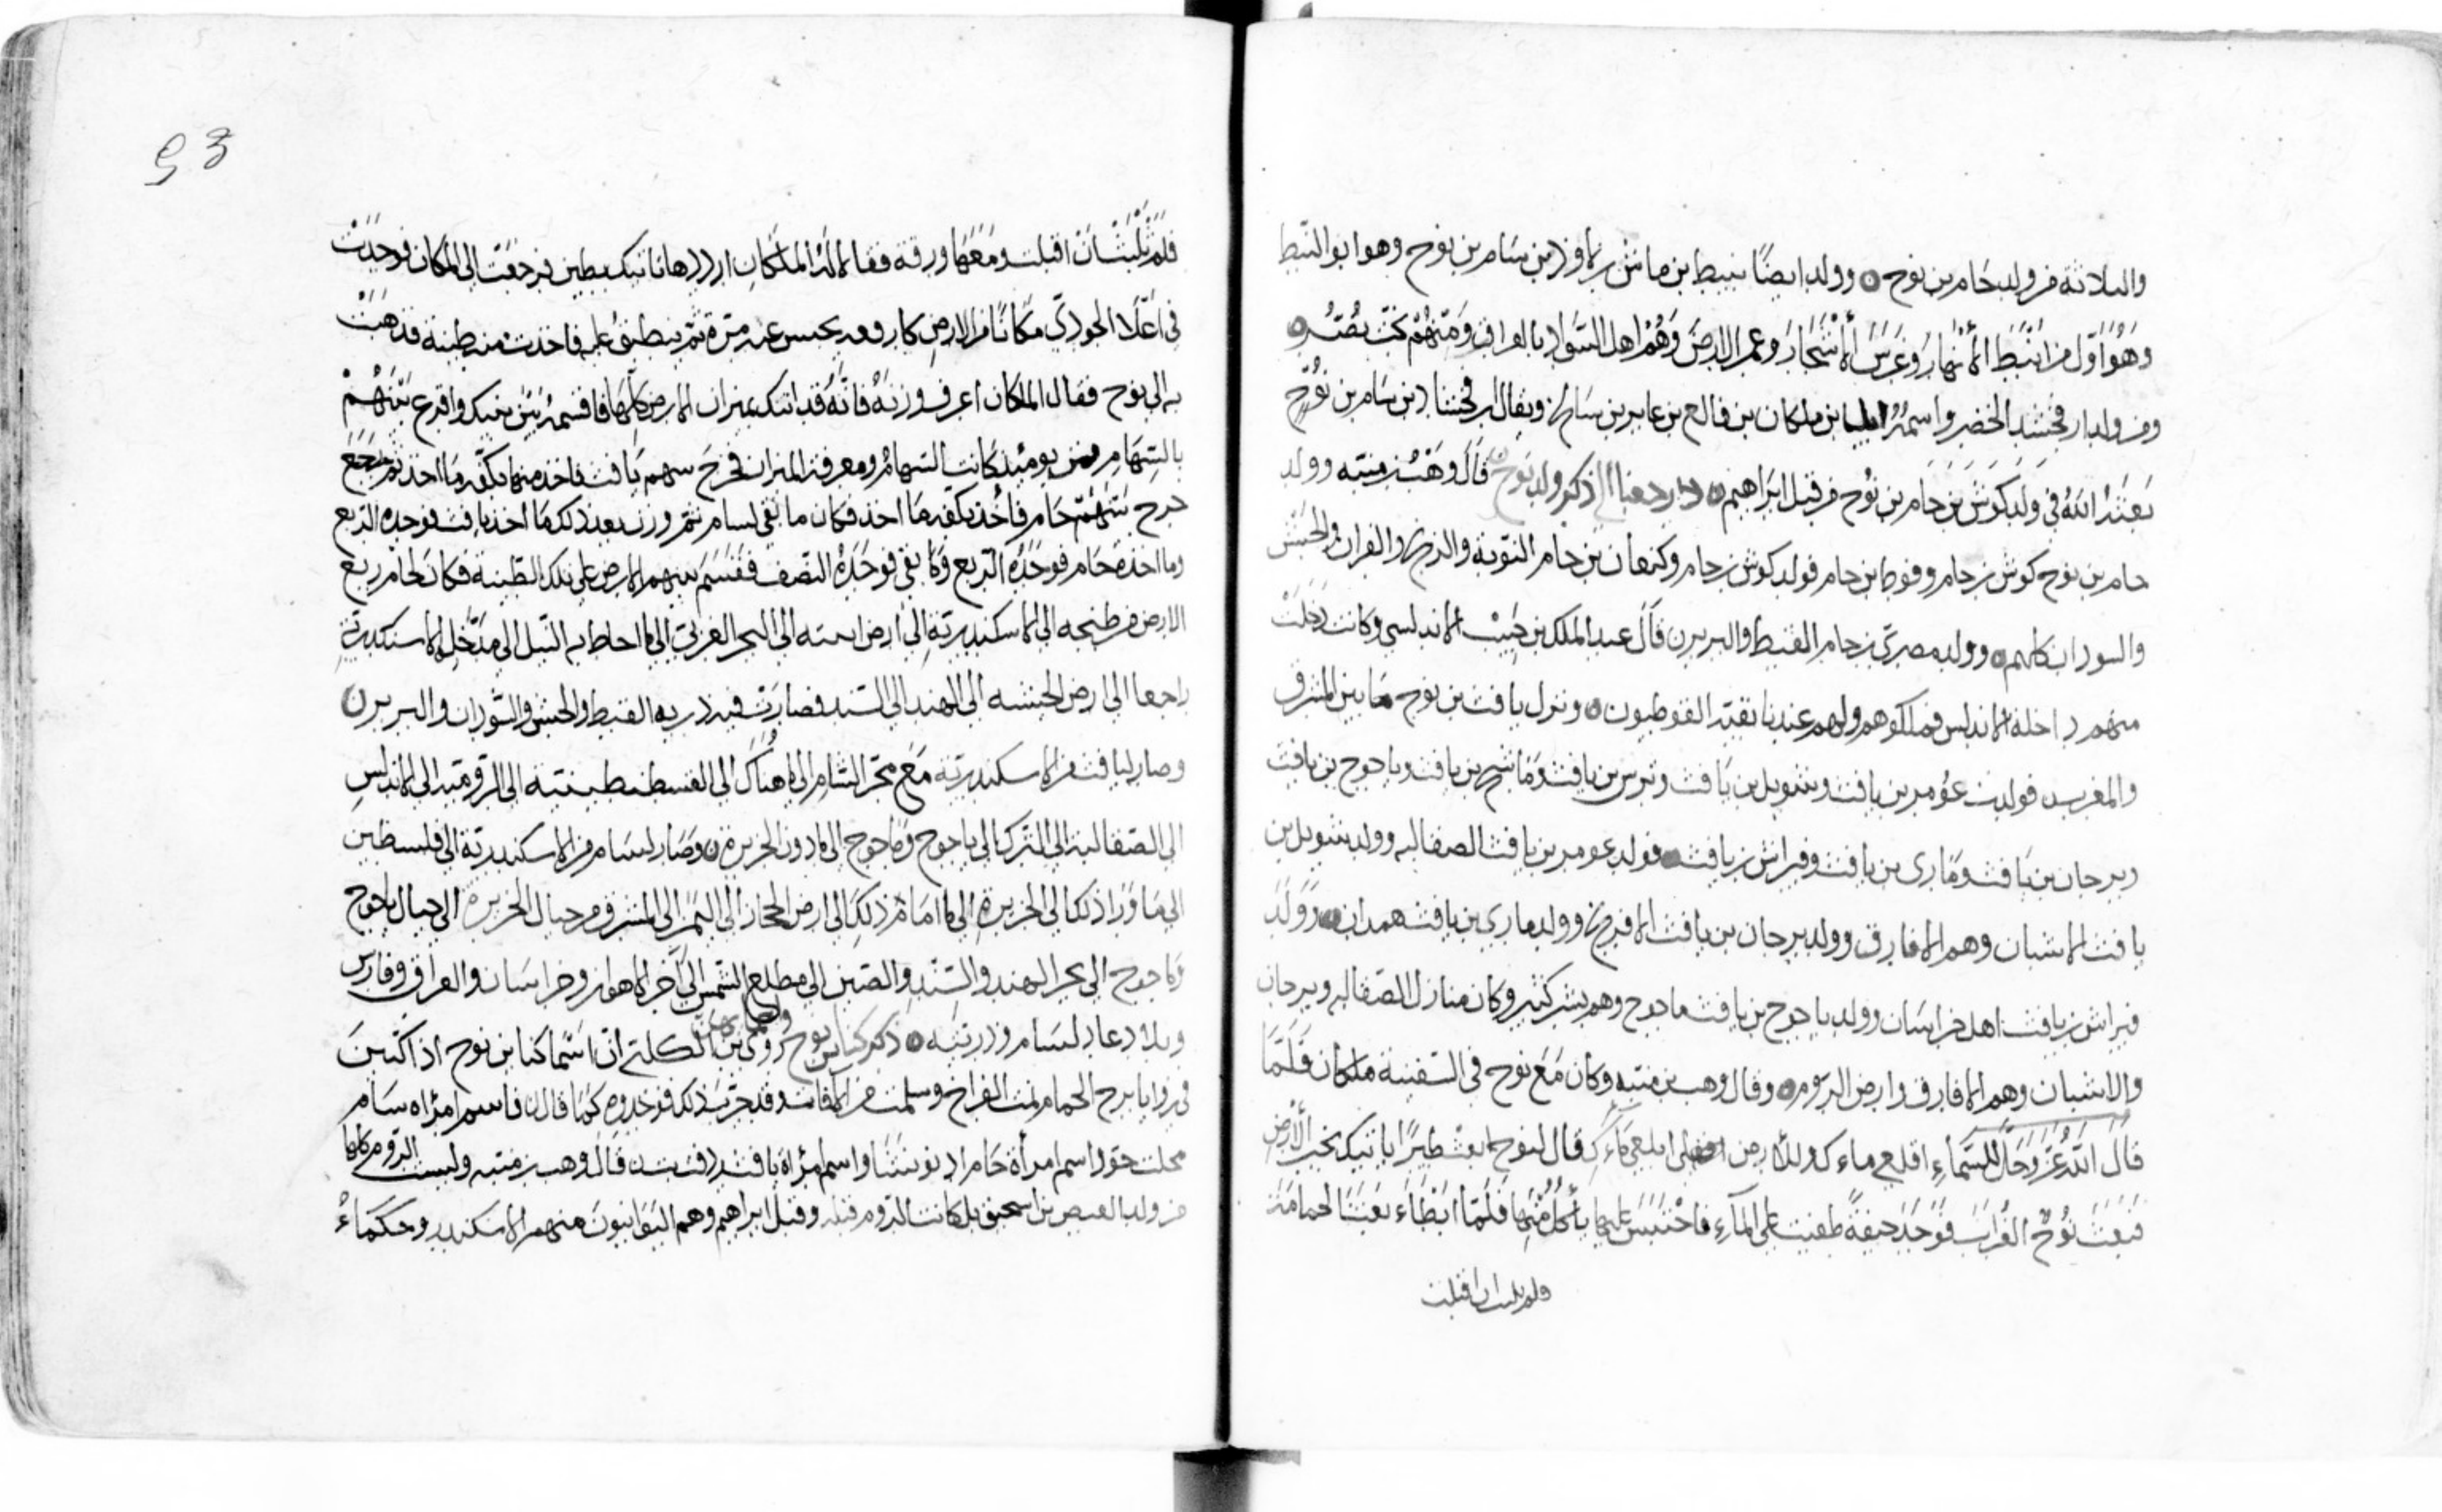 والثلاثة من ولد حام بن نوح ٥ وولد ايضًا نبيط بن ماش بن اوذ بن سام بن نوح وهو ابو النبط
وهو اول من انبط الأنهار وغرس الأشجار وعمر الارض وهم اهل السواد بالعراق ومنهم
ومن ولد ارفخشد الخضر واسمه ايليا بن ملكان بن فالع بن عابر بن سام ويقال ارفخشاد بن سام بن نوح
بعثه الله في ولد كوش بن حام بن نوح من قبل ابراهيم ٥ رجعنا الى ذكر ولد نوح قال وهب بن منبه وولد
حام بن نوح كوش بن حام وقوط بن حام فولد كوش بن حام وكنعان بن حام النوبة والزنج والقران والحبش
والسودان كلهم ٥ وولد مصرى بن حام القبط والبربر ٥ قال عبد الملك بن حبيب الاندلسي وكانت دخلت
منهم داخلة الاندلس فملكوهم ولهم عندنا بقية القوطيون ٥ ونزل يافث بن نوح ما بين المشرق
والمغرب فولدت عومر بن يافث وشوبل بن يافث وترس بن يافث وماشح بن يافث وياجوج بن يافث
وبرجان بن يافث وماري بن يافث وفيراش بن يافث ٥ فولد عومر بن يافث الصقالبه وولد شوبل بن
يافث الاشبان وهم الافارق وولد برجان بن يافث الافرنج وولد ماري بن يافث همدان ٥ وولد
فيراش بن يافث اهل خراسان وولد ياجوج بن يافث ماجوج وهم بشر كثير وكان منازل الصقالبه وبرجان
والاشبان وهم الافارق وارض الروم ٥ وقال وهب بن منبه وكان مع نوح في السفينة ملكان فلما
قال الله عز وجل للسماء اقلعي ماءك وللارض ابلعي ماءك قال لنوح ابعث طيرًا ياتيك بخبر الأرض
فبعث نوح الغراب فوجد جيفة طفيت على الماء فاحتبس عليها يأكل منها فلما ابطاء بعث الحمامة
فلم يلبث ان اقبلت
53
فلم تلبث ان اقبلت ومعها ورقة فقالا له الملكان ارددها تاتيك بطين فرجعت الى المكان فوجدت
في اعلا الجودي مكانًا من الارض كان قد يحبس عنه مرة ثم ينطبق عليه فاخذت من طينة فذهبت
به الى نوح فقال الملكان اعرف وزنه فانه قد اتيك بميزان الارض كلها فاقسمه بين بنيك واقرع بينهم
بالسهام فمن يومئذ كانت السهام ومعرفة الميزان فخرج سهم يافث فاخذ منها بكفه ما اخذ ثم رجع
خرج سهم حام فأخذ بكفه ما اخذ فكان ما بقي لسام ثم وزن بعد ذلك ما اخذ يافث فوجده الربع
وما اخذه حام فوجده الربع وما بقي فوجده النصف فقسم بينهم الارض على تلك الطينة فكان لحام ربع
الارض من طنجه الى الاسكندرية الى ارض الى البحر الغربي الى ما احاط به النيل الى مدخل الاسكندرية
راجعا الى ارض الحبشه الى الهند الى السند فصارت فيه ذريه القبط والحبش والسودان والبربر ٥
وصار ليافث من الاسكندرية مع بحر الشام الى ما هناك الى القسطنطينية الى الروميه الى الاندلس
الى الصقالبة الى الترك الى ياجوج وماجوج الى ما دون الجزيرة ٥ وصار لسام من الاسكندرية الى فلسطين
الى ما وراء ذلك الى الجزيرة الى ما امام ذلك الى ارض الحجاز الى اليمن الى المشرق وجبال الجزيرة الى جبال ياجوج
وماجوج الى بحر الهند والسند والصين الى مطلع الشمس الى آخر الاهواز وخراسان والعراق وفارس
وبلاد عاد لسام وذريته ٥ ذكر كناين نوح روى ابن الكلبي ان اسما كناين نوح اذا كتبن
في زوايا برج الحمام نمت الفراخ وسلمت من الافات وقد جرب ذلك فوجدوه كما قال ٥ فاسم امراه سام
محلت حو واسم امرأة حام اد واسم امراة يافث قال وهب بن منبه وليست الروم كلها
من ولد العيص بن اسحق بل كانت الروم قبله وقبل ابراهيم وهم اليونانيون منهم الاسكندر وحكماء